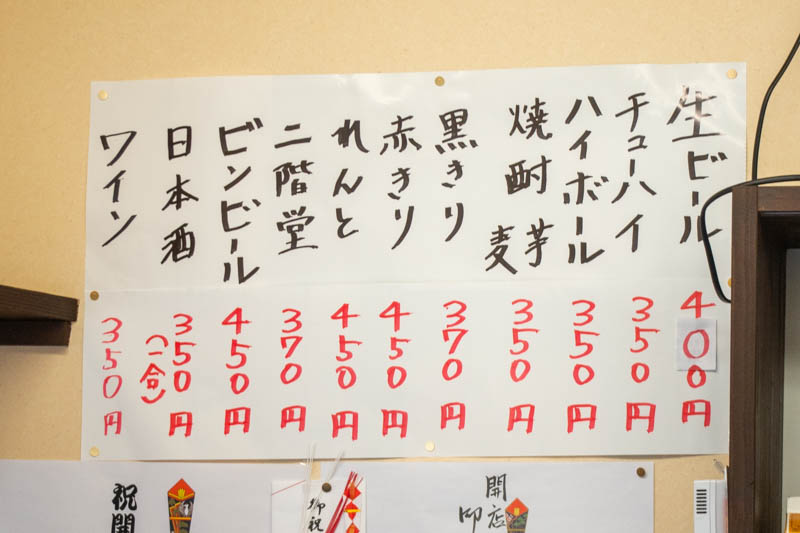 生ビール 400円
チューハイ 350円
ハイボール 350円
焼酎 芋 麦 350円
黒きり 370円
赤きり 450円
れんと 450円
二階堂 370円
ビンビール 450円
日本酒 350円 (一合)
ワイン 350円
開店
御祝
祝開